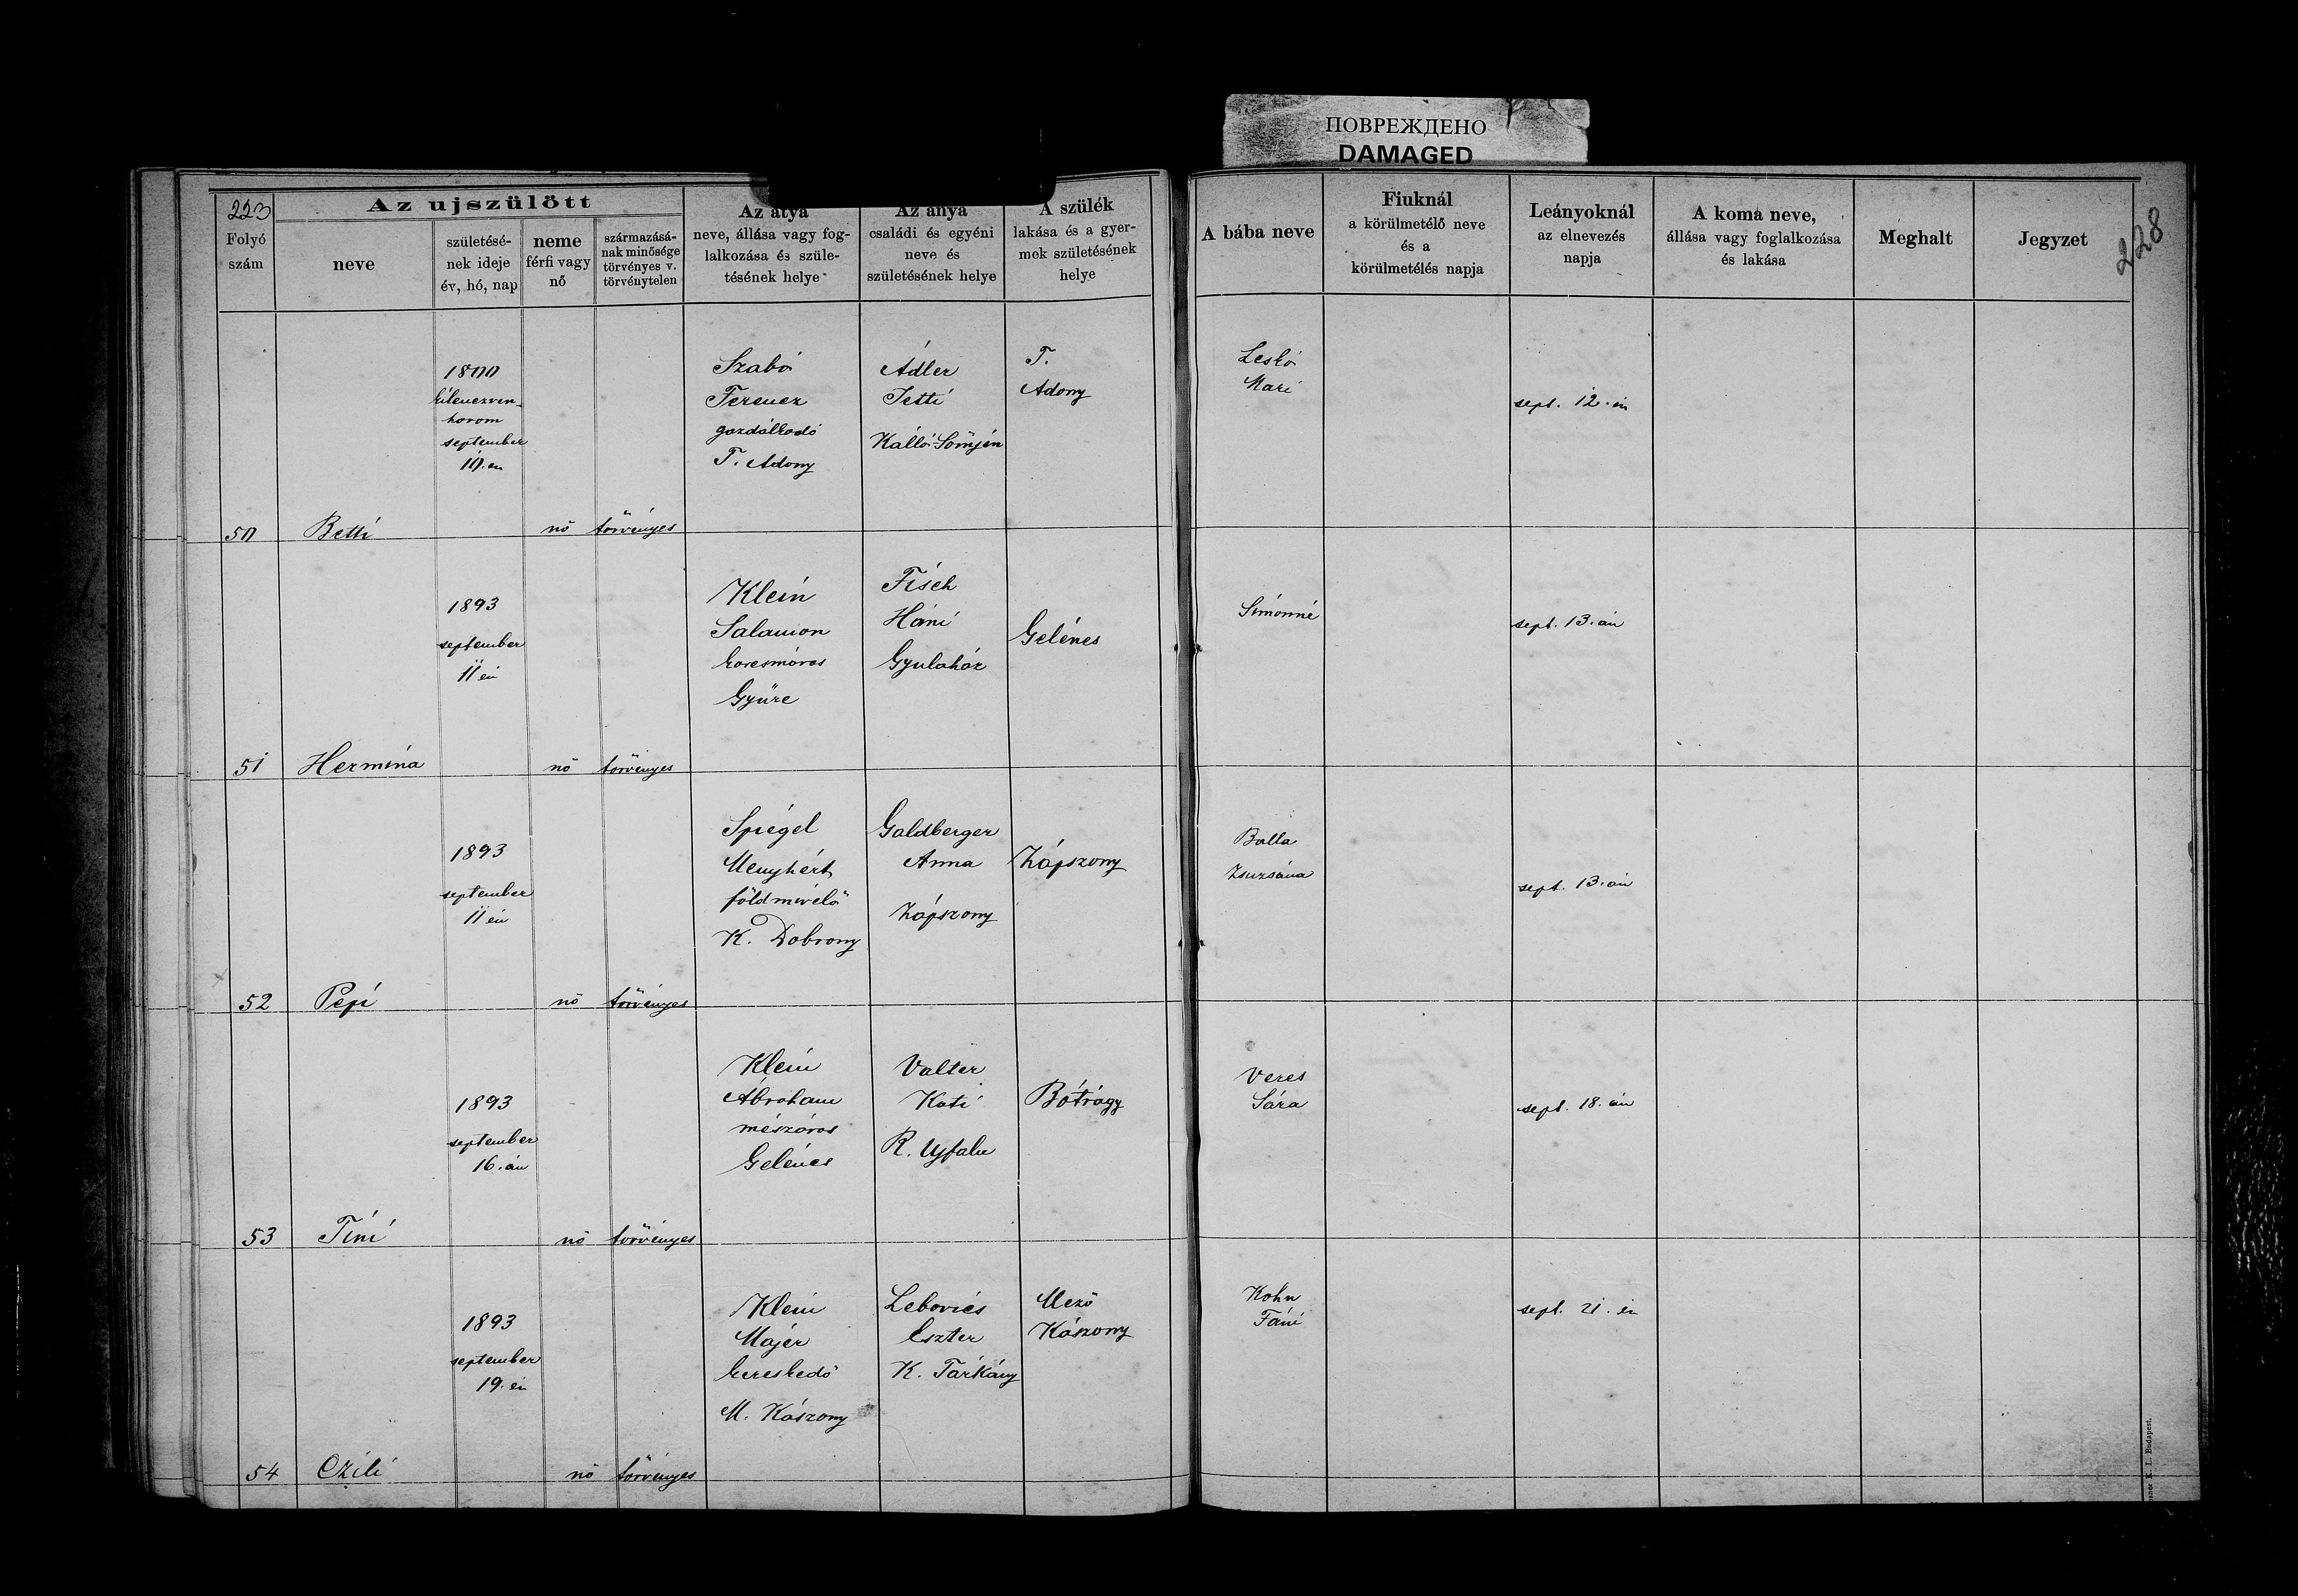 ПОВРЕЖДЕНО
DAMAGED
223
228
Az ujszülött
Folyó
szám
neve
születésé-
nek ideje
év, hó, nap
neme
férfi vagy
nő
származásá-
nak minősége
törvényes v.
törvénytelen
Az atya
neve, állása vagy fog-
lalkozása és szüle-
tésének helye
Az anya
családi és egyéni
neve és
születésének helye
A szülék
lakása és a gyer-
mek születésének
helye
A bába neve
Fiuknál
a körülmetélő neve
és a
körülmetélés napja
Leányoknál
az elnevezés
napja
A koma neve,
állása vagy foglalkozása
és lakása
Meghalt
Jegyzet
50
Betti
1800
kilenczven-
három
september
10.én
nő
törvényes
Szabó
Ferencz
gazdálkodó
T. Adony
Ádler
Jetti
Kálló-Sömjén
T.
Adony
Leskó
Mari
sept. 12.én
51
Hermina
1893
september
11 én
nő
törvényes
Klein
Salamon
korcsmáros
Gyüre
Fisch
Háni
Gyulaház
Gelénes
Simonné
sept. 13.án
52
Pepi
1893
september
11 én
nő
törvényes
Spiegel
Menyhért
földmivelő
K. Dobrony
Goldberger
Anna
Zápszony
Zápszony
Balla
Zsuzsána
sept. 13.án
53
Tini
1893
september
16.án
nő
törvényes
Klein
Ábraham
mészáros
Gelénes
Valter
Kati
R. Ujfalu
Bótrágy
Veres
Sára
sept. 18.án
54
Czili
1893
september
19.én
nő
törvényes
Klein
Májer
kereskedő
M. Kászony
Lebovics
Eszter
K. Tárkány
Mező
Kászony
Kohn
Fáni
sept. 21.én
K. L. Budapest.